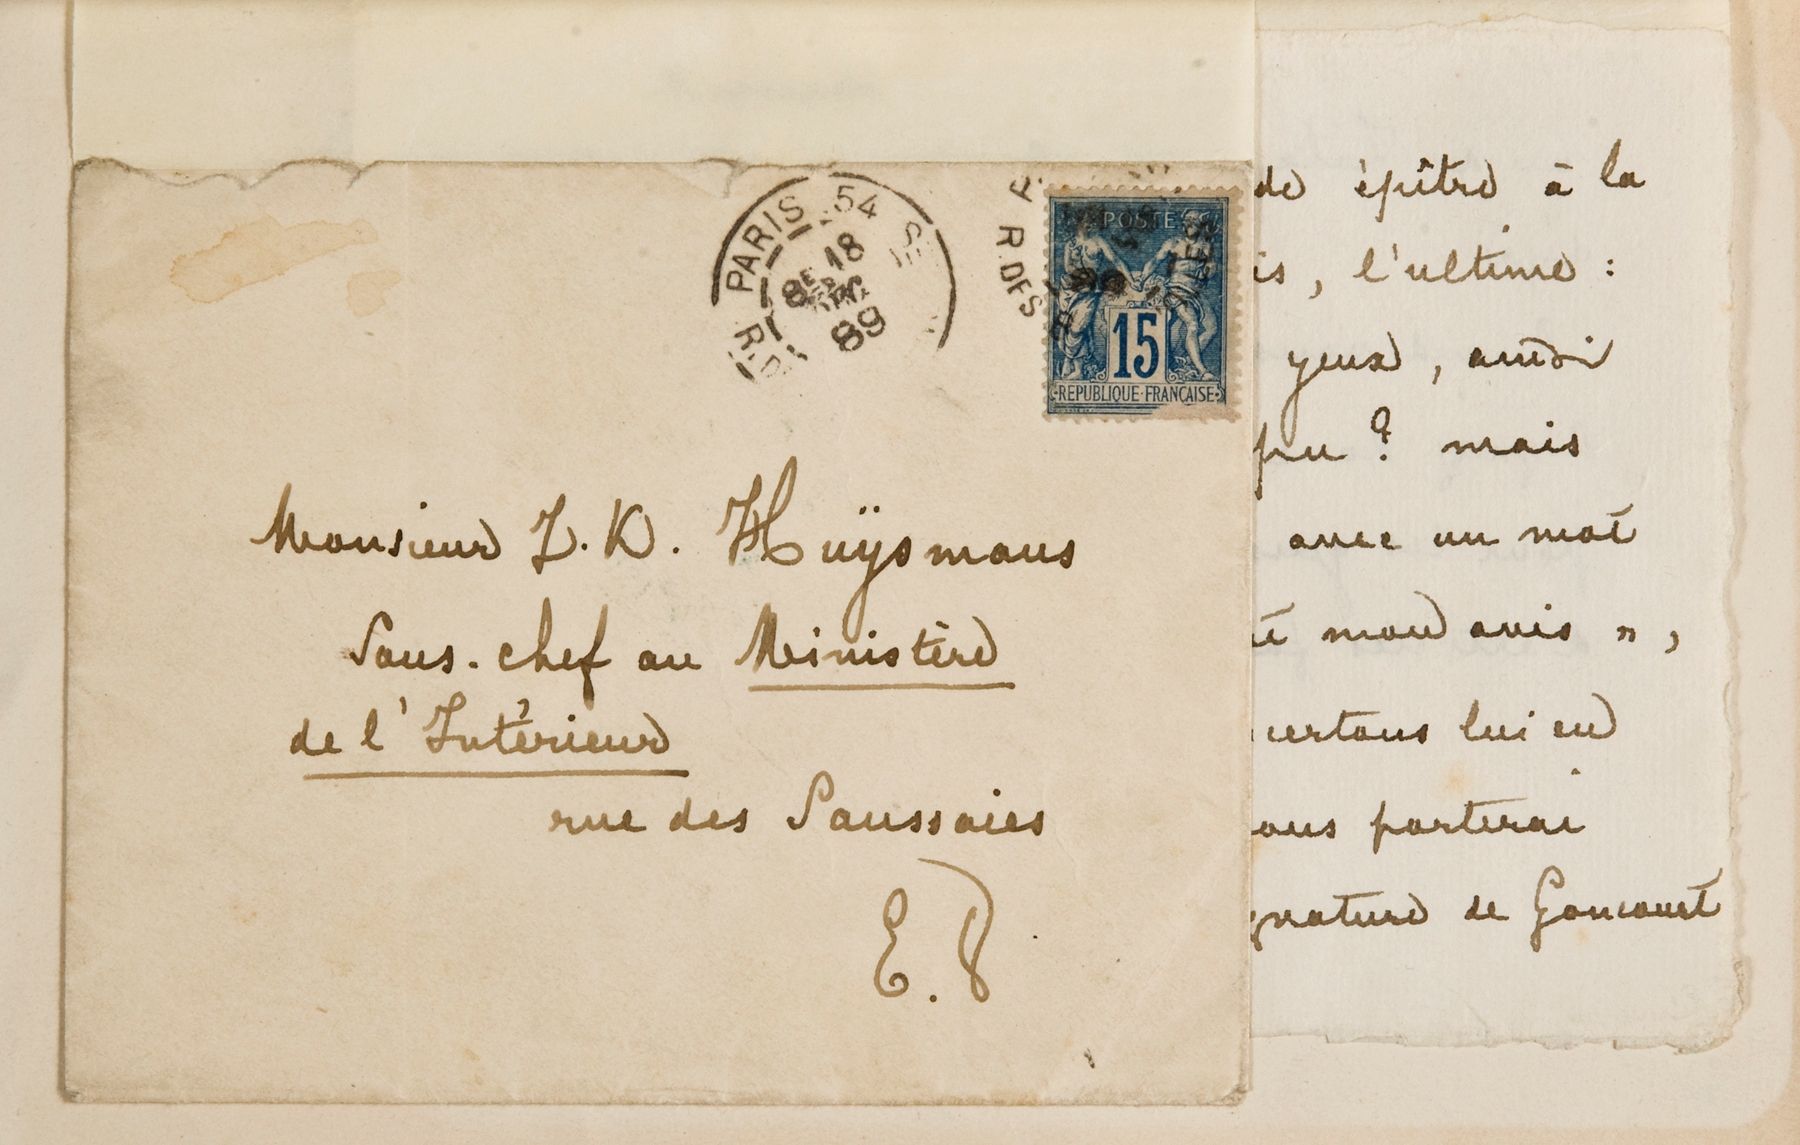 PARIS 54
8E 18
DEC
89
R. DES
POSTE
15
REPUBLIQUE FRANÇAISE
Monsieur J. K. Huÿsmans
Sous-chef au Ministère
de l'Intérieur
rue des Saussaies
E. V
de épître à la
is, l'ultime :
yeux, ainsi
pu ? mais
avec un mot
mon avis »,
lui en
ous porterai
gnature de Goncourt